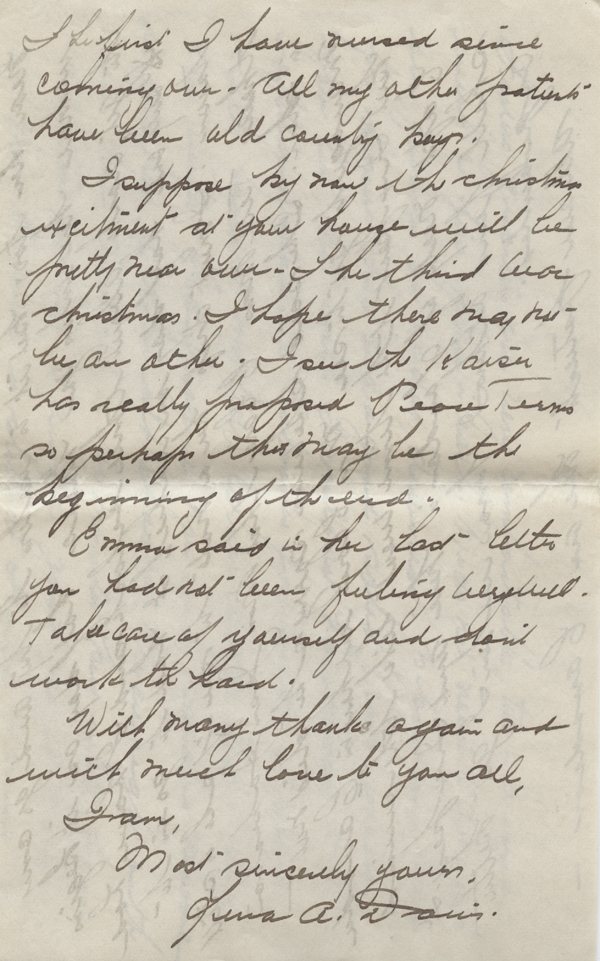 The first I have nursed since
coming over. All my other patients
have been old country boys.
I suppose by now the christmas
excitment at your house will be
pretty near over. The third War
christmas. I hope there may not
be an other. I see the Kaiser
has really proposed Peace Terms
so perhaps this may be the
beginning of the end.
Emma said in her last letter
you had not been feeling very well.
Take care of yourself and don't
work to hard.
With many thanks again and
with much love to you all,
I am,
Most sincerely yours,
A. Davis.